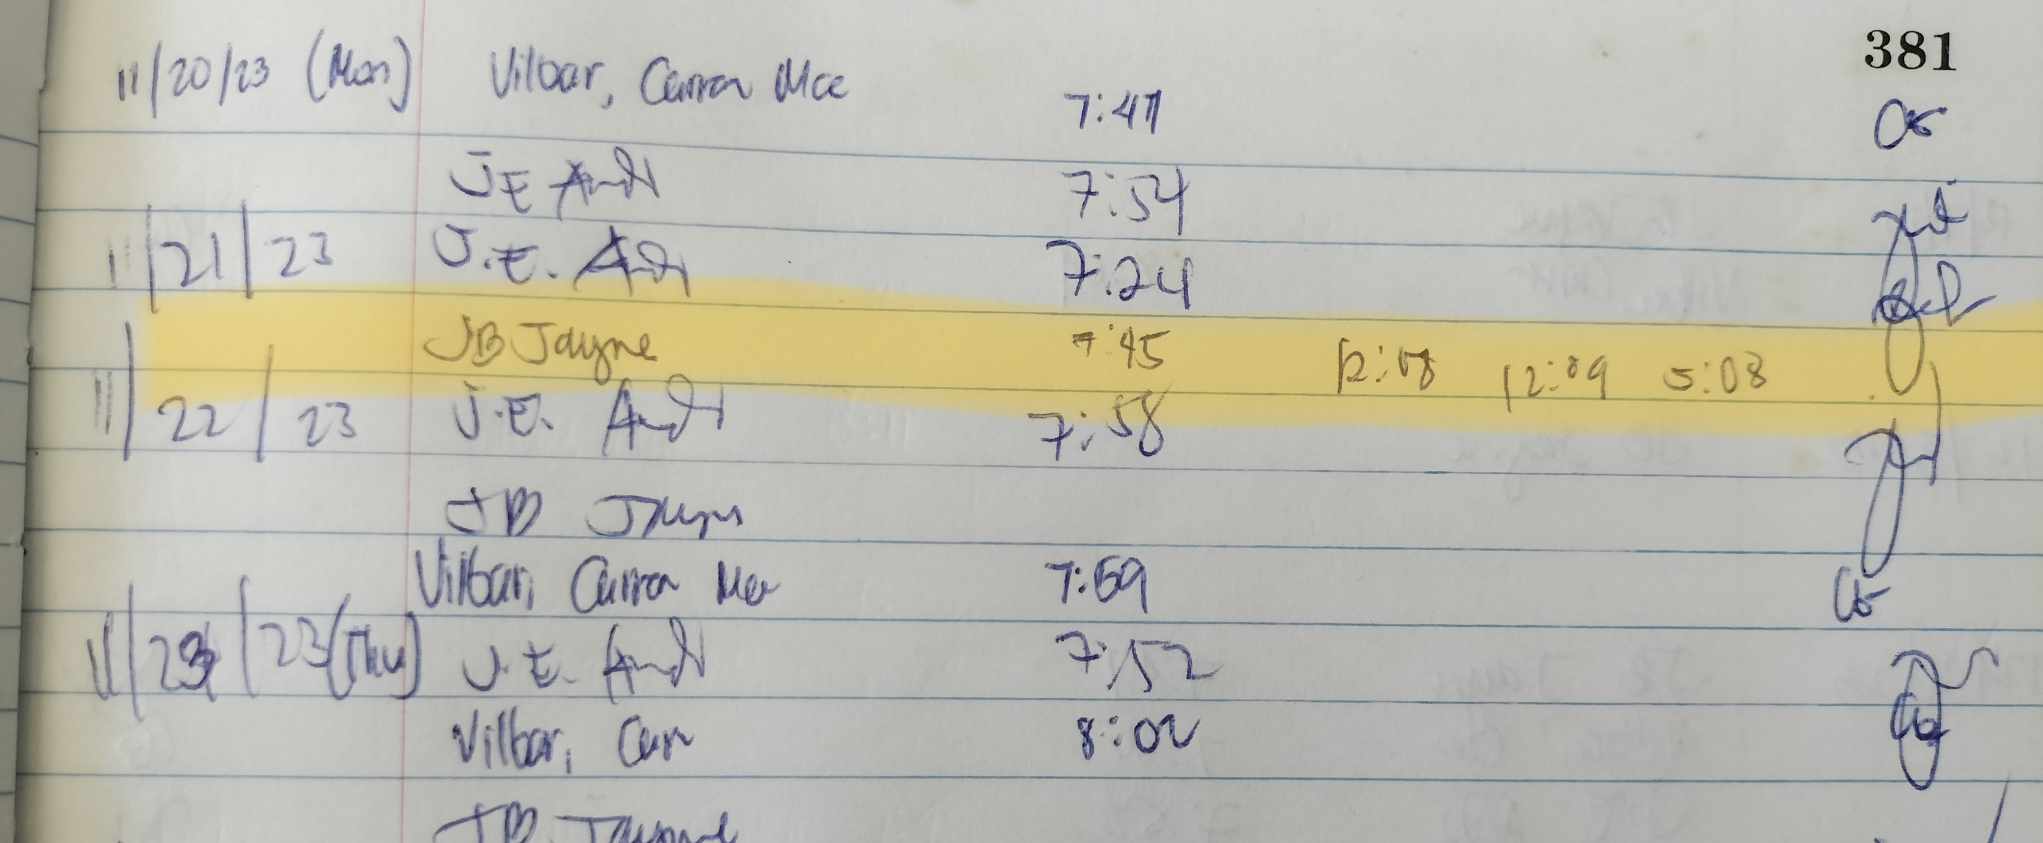 381
11/20/23 (Mon) Vilbar, Carron Mae 7:47
JE And 7:54
11/21/23 J.E. And 7:24
JB Jayne 7:45 12:08 12:09 5:03
11/22/23 J.E. And 7:58
JB Jayne
Vilbar, Carron Mae 7:59
11/23/23 (Thu) J.E. And 7:52
Vilbar, Carr 8:02
JB